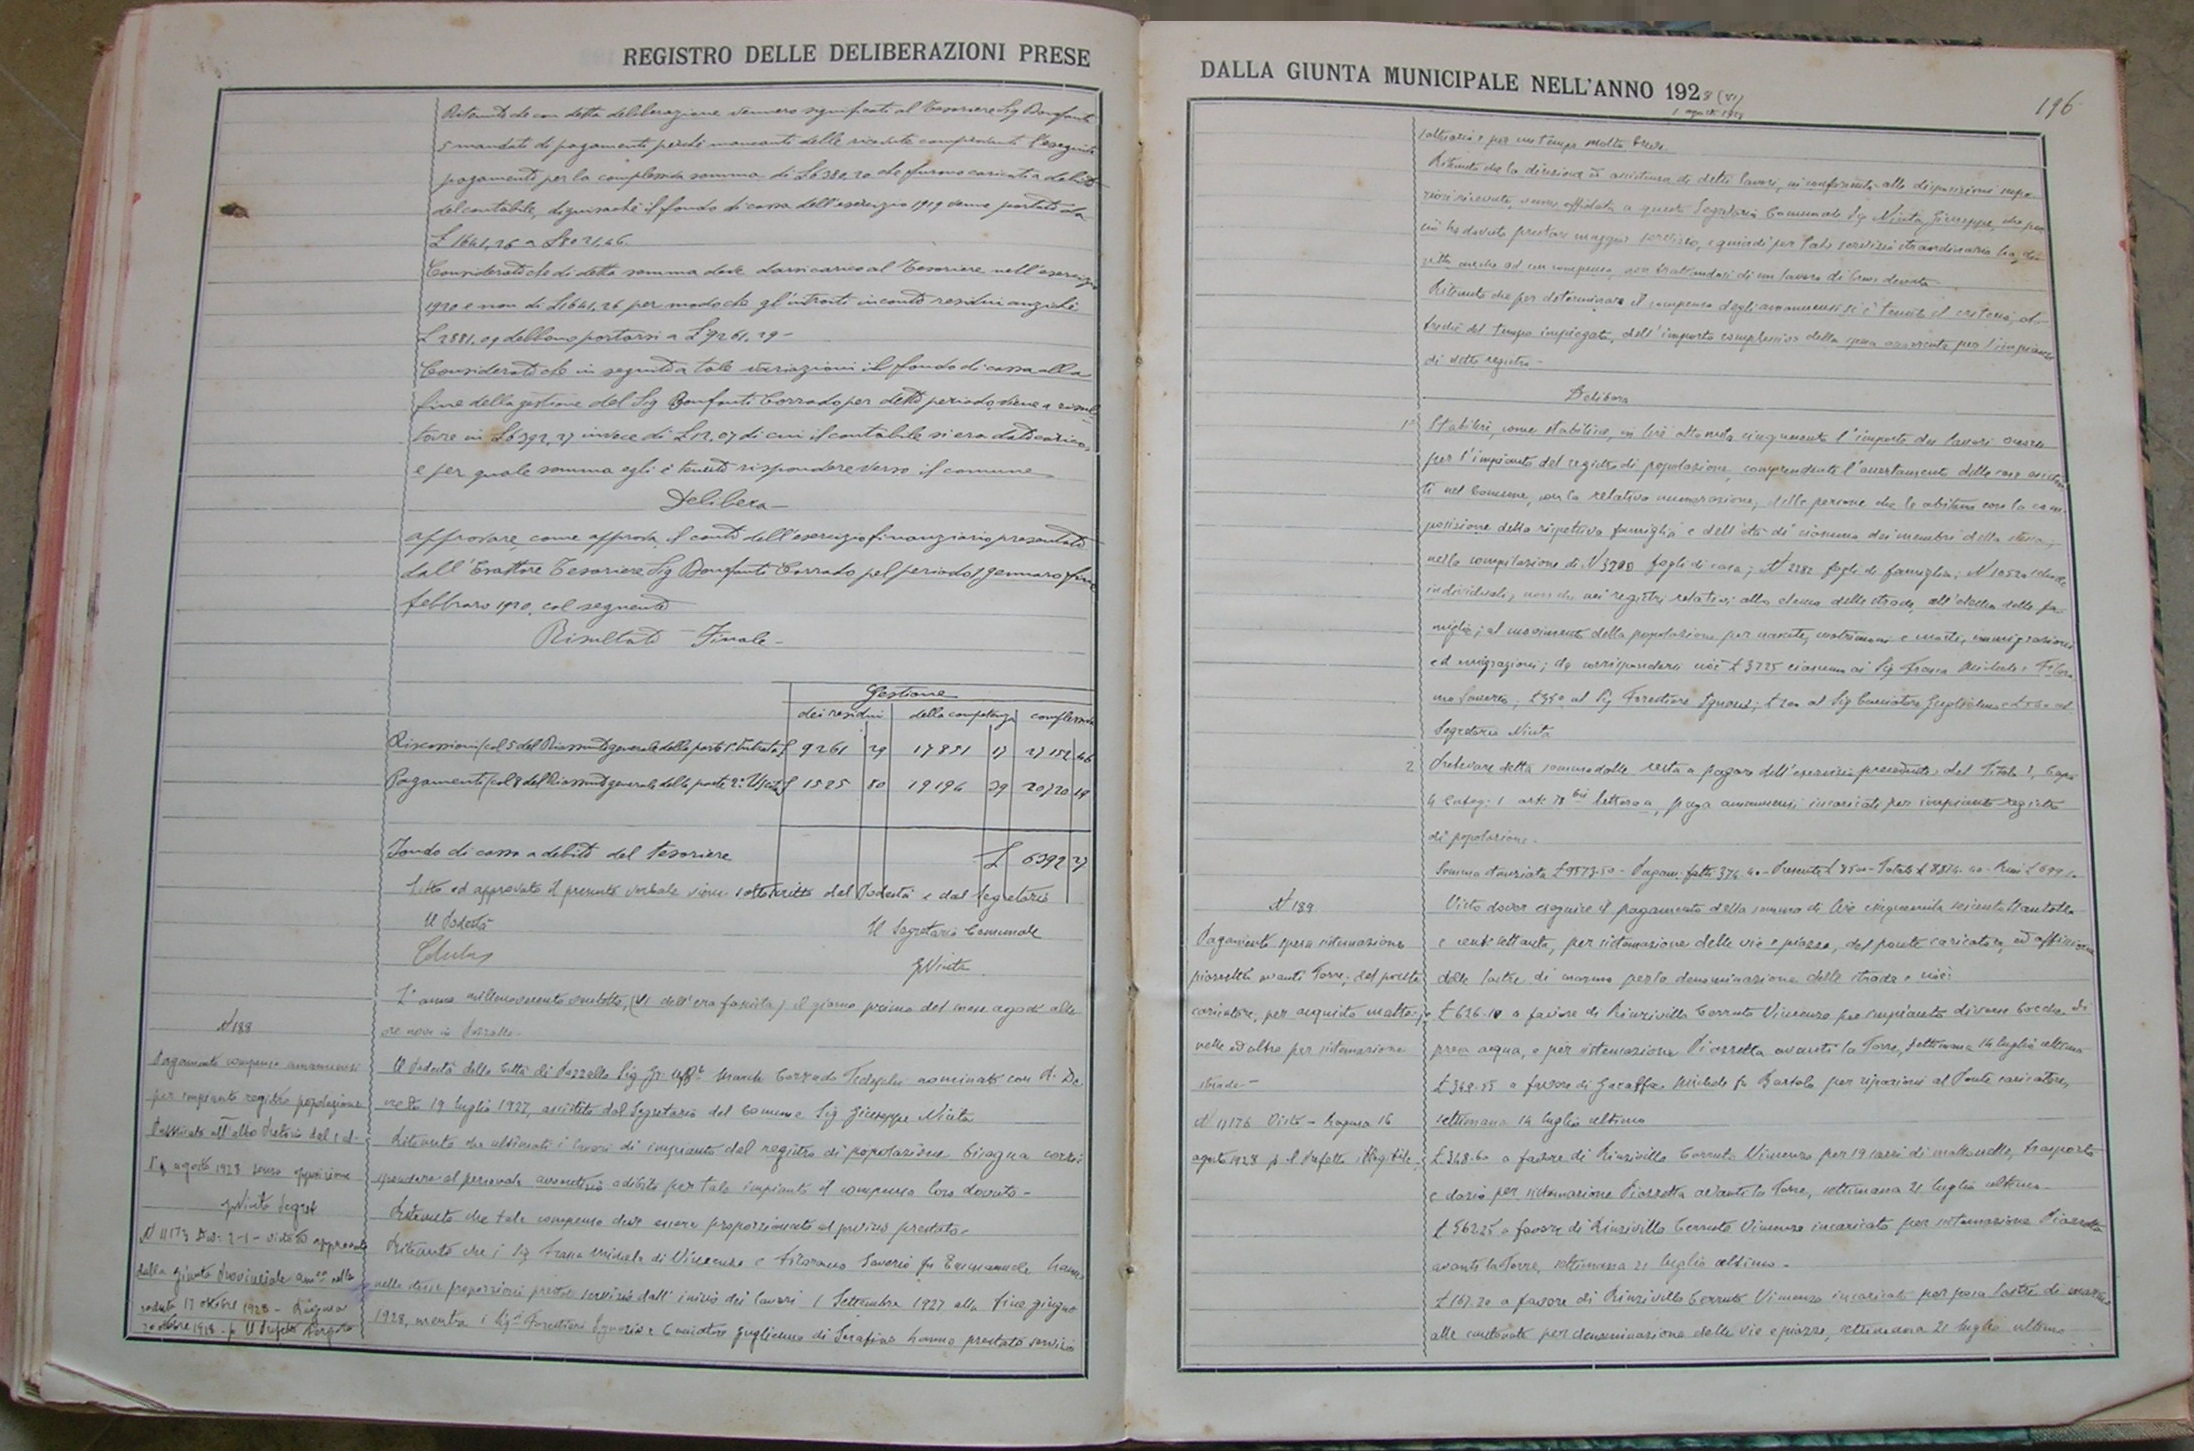 REGISTRO DELLE DELIBERAZIONI PRESE
Ritenuto che con detta deliberazione vennero significati al Tesoriere Sig Bonfanti
5 mandati di pagamento perché mancanti delle ricevute comprovanti l'eseguito
pagamento per la complessiva somma di L 6380,20 che furono caricati a debito
del contabile, diguisaché il fondo di cassa dell'esercizio 1919 venne portato da
£ 1641,26 a £ 8021,46
Considerato che di detta somma deve darsi carico al Tesoriere nell'esercizio
1920 e non di L 1641,26 per modo che gl'introiti in conto residui anziché
£ 2881,09 debbono portarsi a £ 9261,29 -
Considerato che in seguito a tale variazioni il fondo di cassa alla
fine della gestione del Sig Bonfanti Corrado per detto periodo viene a risul
tare in £ 6392,27 invece di £ 12,07 di cui il contabile si era dato carico,
e per quale somma egli è tenuto rispondere verso il comune
Delibera -
approvare, come approva, il conto dell'esercizio finanziario presentato
dall'Esattore Tesoriere Sig Bonfanti Corrado pel periodo 1 gennaro fine
febbraro 1920, col seguente
Risultato Finale -
Gestione
dei residui della competenza complessiva
Riscossioni (col 5 del Riassunto generale della parte 1ª Entrata) £ 9261 29 17891 17 27152 46
Pagamenti (col 8 del Riassunto generale della parte 2ª Uscita) £ 1525 80 19194 39 20720 19
Fondo di cassa a debito del tesoriere £ 6392 27
Letto ed approvato il presente verbale viene sottoscritto dal Podestà e dal Segretario
Il Podestà Il Segretario Comunale
GNinta
L'anno millenovecentoventotto, (VI dell'era fascista) il giorno primo del mese agosto alle
ore nove in Pozzallo -
N 188
Pagamento compenso amanuensi
per impianto registro popolazione
Pubblicato all'albo Pretorio dal 1 al
agosto 1928 senza opposizione
GNinta Segret
N 11173 Div. 2-1 - visto ed approvato
dalla Giunta Provinciale amva nella
seduta 17 ottobre 1928 - Ragusa
20 ottobre 1928 - p Il Prefetto
Il Podestà della Città di Pozzallo Sig Gr. Uff. March Corrado Tedeschi nominato con R. De
creto 19 luglio 1927, assistito dal Segretario del Comune Sig Giuseppe Ninta
Ritenuto che ultimati i lavori di impianto del registro di popolazione bisogna corri
spondere al personale avventizio adibito per tale impianto il compenso loro dovuto -
Ritenuto che tale compenso deve essere proporzionato al servizio prestato -
Ritenuto che i Sig Frasca Michele di Vincenzo e Filoramo Saverio fu Emmanuele hanno
nelle stesse proporzioni prestato servizio dall'inizio dei lavori 1 Settembre 1927 alla fine giugno
1928, mentre i Sigri Forestieri Ignazio e Cacciatore Guglielmo di Serafino hanno prestato servizio
DALLA GIUNTA MUNICIPALE NELL'ANNO 1928 (VI)
1 agosto 1928
196
saltuario e per un tempo molto breve -
Ritenuto che la direzione ed assistenza di detti lavori, in conformità alle disposizioni supe
riori ricevute, venne affidata a questo Segretario Comunale Sig Ninta Giuseppe, che per
ciò ha dovuto prestare maggior servizio, e quindi per tale servizio straordinario ha di
ritto anche ad un compenso, non trattandosi di un lavoro di breve durata
Ritenuto che per determinare il compenso degli amanuensi si è tenuto il criterio, ol
treché del tempo impiegato, dell'importo complessivo della spesa occorrente per l'impianto
di detto registro -
Delibera
1° Stabilire, come stabilisce, in lire ottomila cinquecento l'importo dei lavori occorsi
per l'impianto del registro di popolazione, comprendente l'accertamento delle case esisten
ti nel Comune, con la relativa numerazione, delle persone che le abitano con la com
posizione della rispettiva famiglia e dell'età di ciascuno dei membri della stessa,
nella compilazione di N 3200 fogli di casa; N 2282 fogli di famiglia; N 10520 schede
individuali, nonché nei registri relativi allo elenco delle strade, all'elenco delle fa
miglie, al movimento della popolazione per nascite, matrimoni e morti, immigrazioni
ed emigrazioni; da corrispondersi cioè £ 3725 ciascuno ai Sig Frasca Michele e Filora
mo Saverio, £ 350 al Sig Forestiere Ignazio; £ 200 al Sig Cacciatore Guglielmo e £ 500 al
Segretario Ninta
2 Prelevare detta somma dalle resta a pagare dell'esercizio precedente del Titolo I, Capo
4 Categ. 1 art. 78 bis lettera a, paga amanuensi incaricati per impianto registro
di popolazione.
Somma stanziata £ 9573.50 - Pagam. fatti 374.40 - Presente £ 8500 - Totale £ 8874.40 - Rim £ 699.10
N 189
Pagamento spesa sistemazione
piazzetta avanti Torre, del ponte
caricatore, per acquisto matto-
nelle ed altro per sistemazione
strade -
N 11176 Visto - Ragusa 16
agosto 1928 p il Prefetto
Visto dover eseguire il pagamento della somma di lire cinquemila seicentottantotto
e centesettanta, per sistemazione delle vie e piazze, del ponte caricatore, ed affissione
delle lastre di marmo per la denominazione delle strade e cioè:
£ 626.10 a favore di Rinzivillo Cerruto Vincenzo per impianto diverse bocche di
presa acqua, e per sistemazione Piazzetta avanti la Torre, settimana 14 luglio ultimo
£ 368.55 a favore di Garaffa Michele fu Bartolo per riparazioni al Ponte caricatore,
settimana 14 luglio ultimo
£ 348.60 a favore di Rinzivillo Cerruto Vincenzo per 19 carri di mattonelle, trasporto
e dazio per sistemazione Piazzetta avanti la Torre, settimana 21 luglio ultimo -
£ 562.25 a favore di Rinzivillo Cerruto Vincenzo incaricato per sistemazione Piazzetta
avanti la Torre, settimana 21 luglio ultimo -
£ 167.20 a favore di Rinzivillo Cerruto Vincenzo incaricato per posa lastre di marmo
alle cantonate per denominazione delle vie e piazze, settimana 21 luglio ultimo